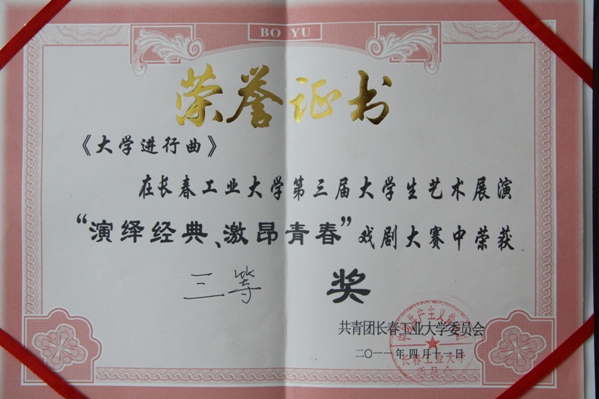 BO YU
荣誉证书
《大学进行曲》
在长春工业大学第三届大学生艺术展演
“演绎经典、激昂青春”戏剧大赛中荣获
三等 奖
共青团长春工业大学委员会
二〇一一年四月十一日
长春工业大学
委员会